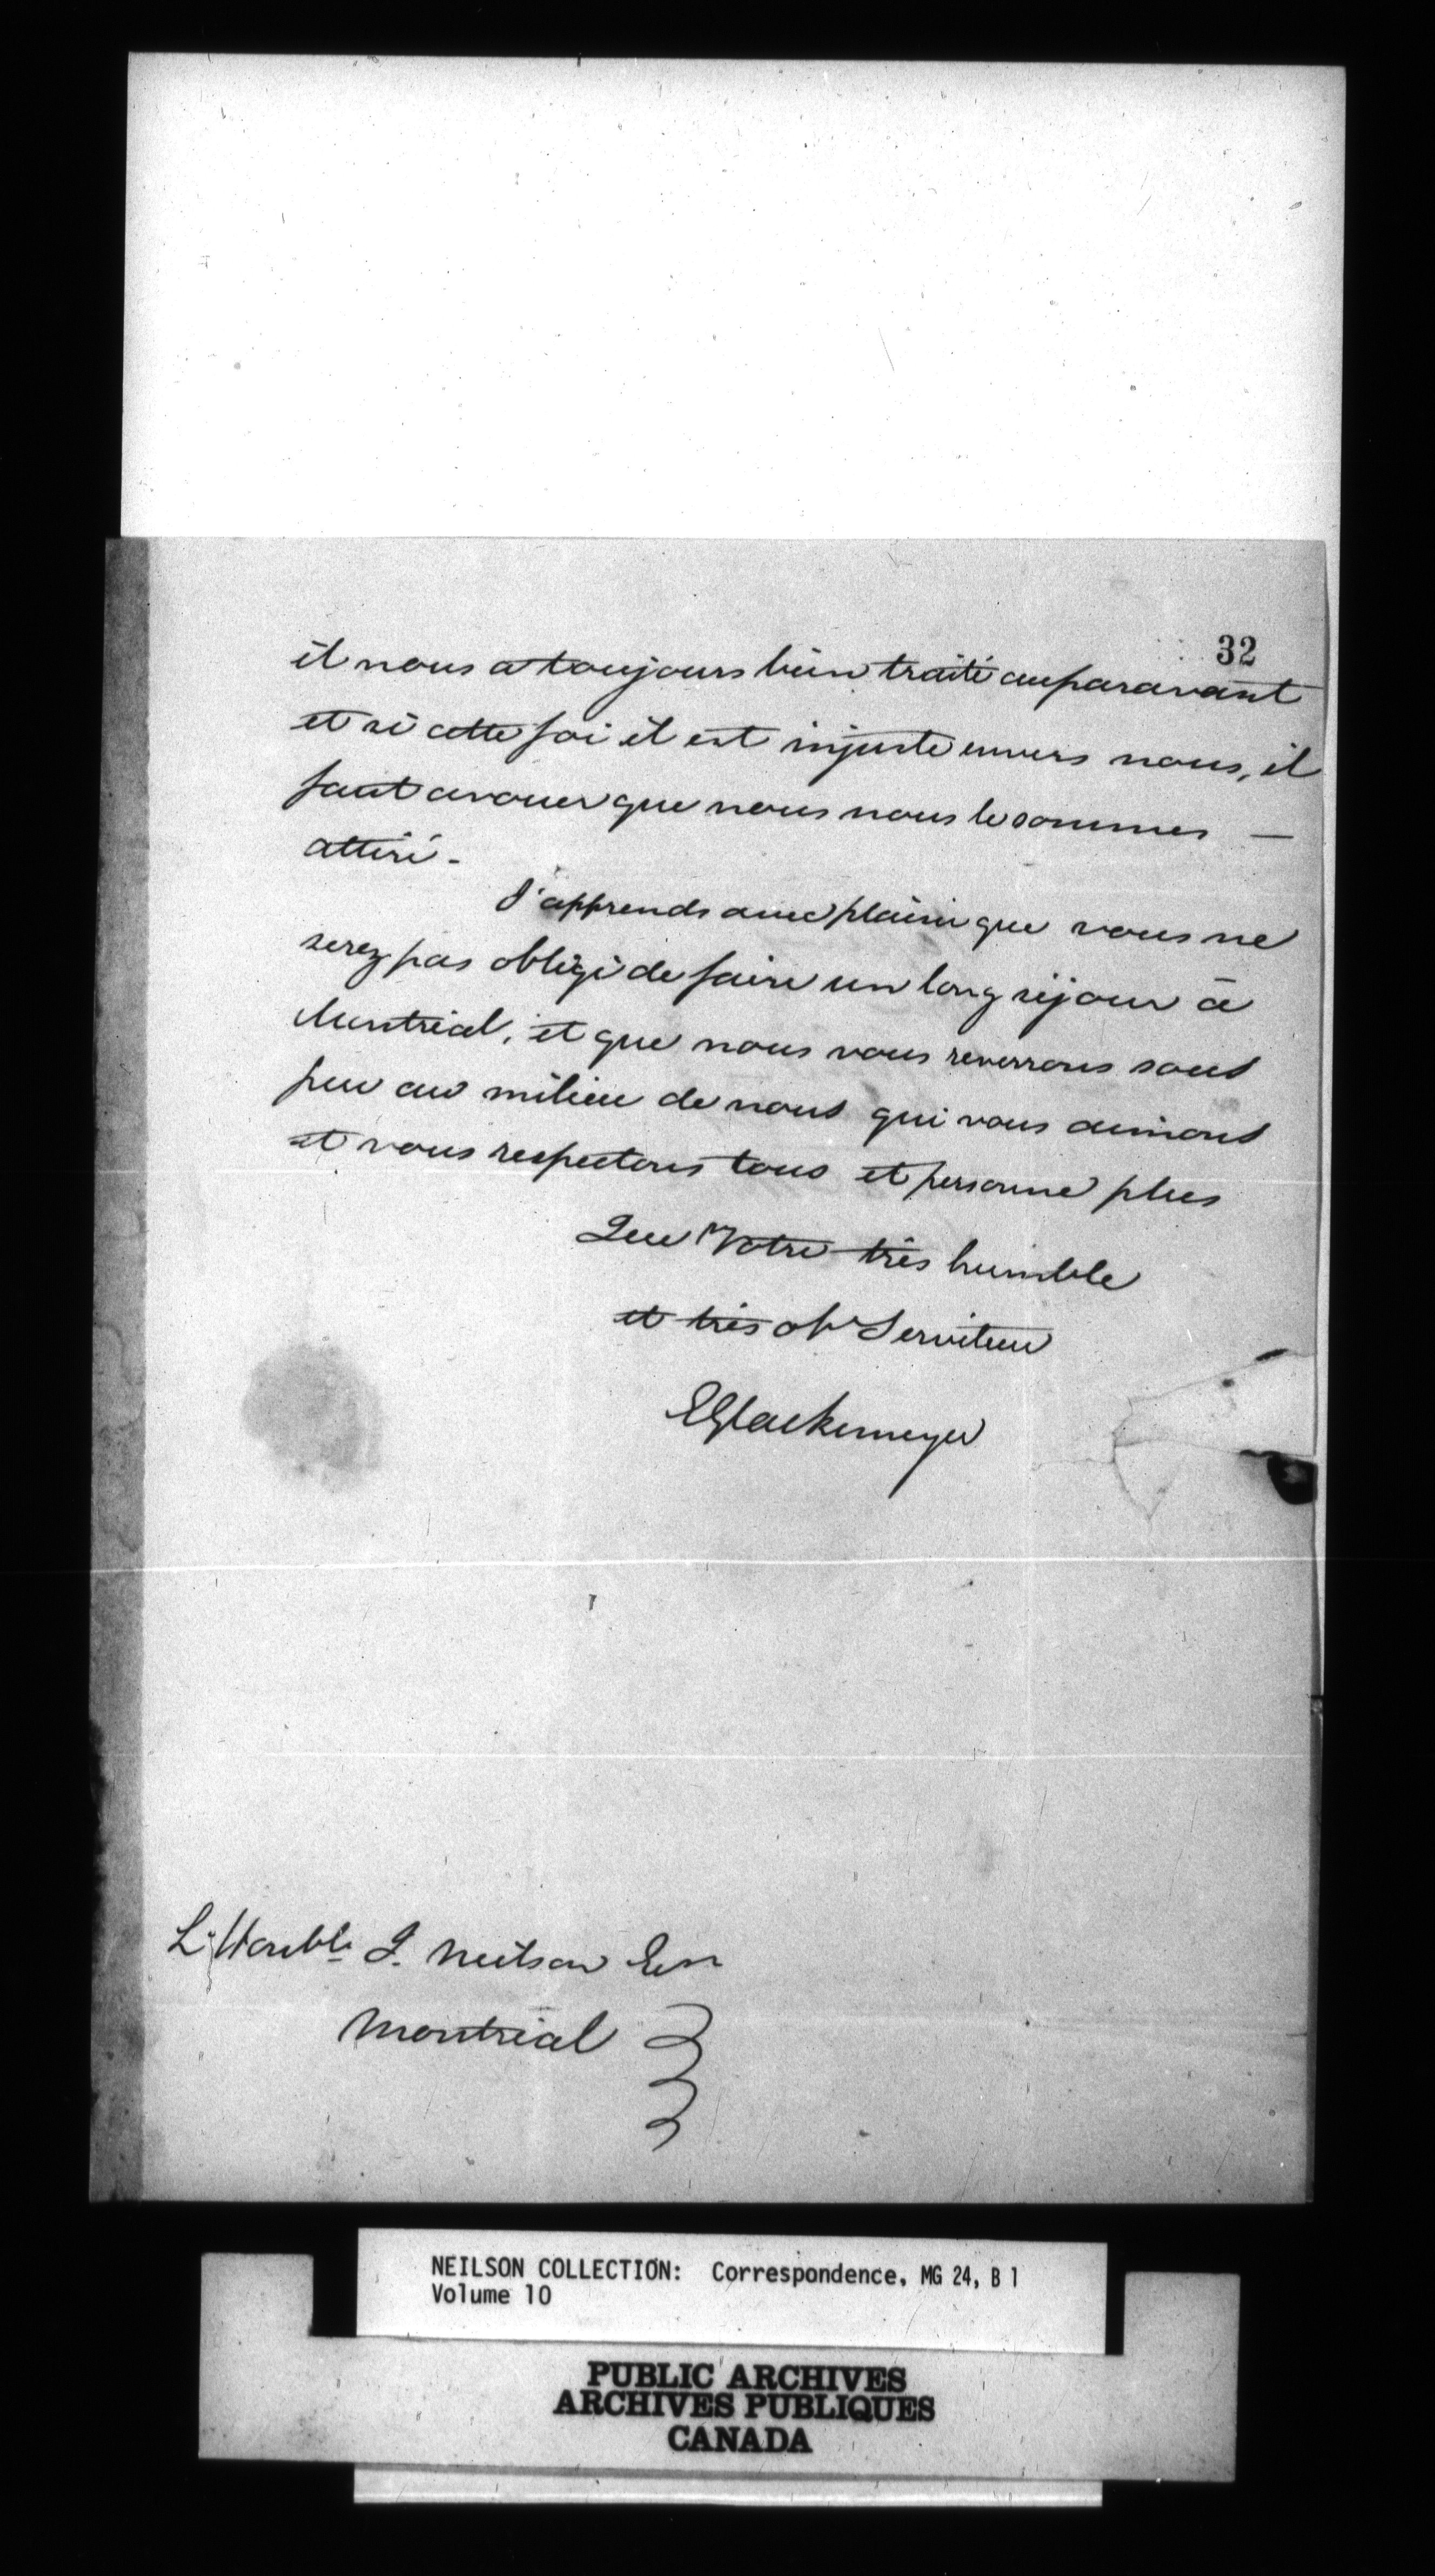 32
il nous a toujours bien traité auparavant
et si cette foi il est injuste envers nous, il
faut avouer que nous nous le sommes —
attiré -
J'apprends avec plaisir que vous ne
serez pas obligé de faire un long séjour à
Montréal, et que nous vous reverrons sous
peu au milieu de nous qui vous aimons
et vous respectons tous et personne plus
Que Votre très humble
et très obt Serviteur
EGlackemeyer
L'Honble J. Neilson Esr
Montréal
NEILSON COLLECTION: Correspondence, MG 24, B 1
Volume 10
PUBLIC ARCHIVES
ARCHIVES PUBLIQUES
CANADA